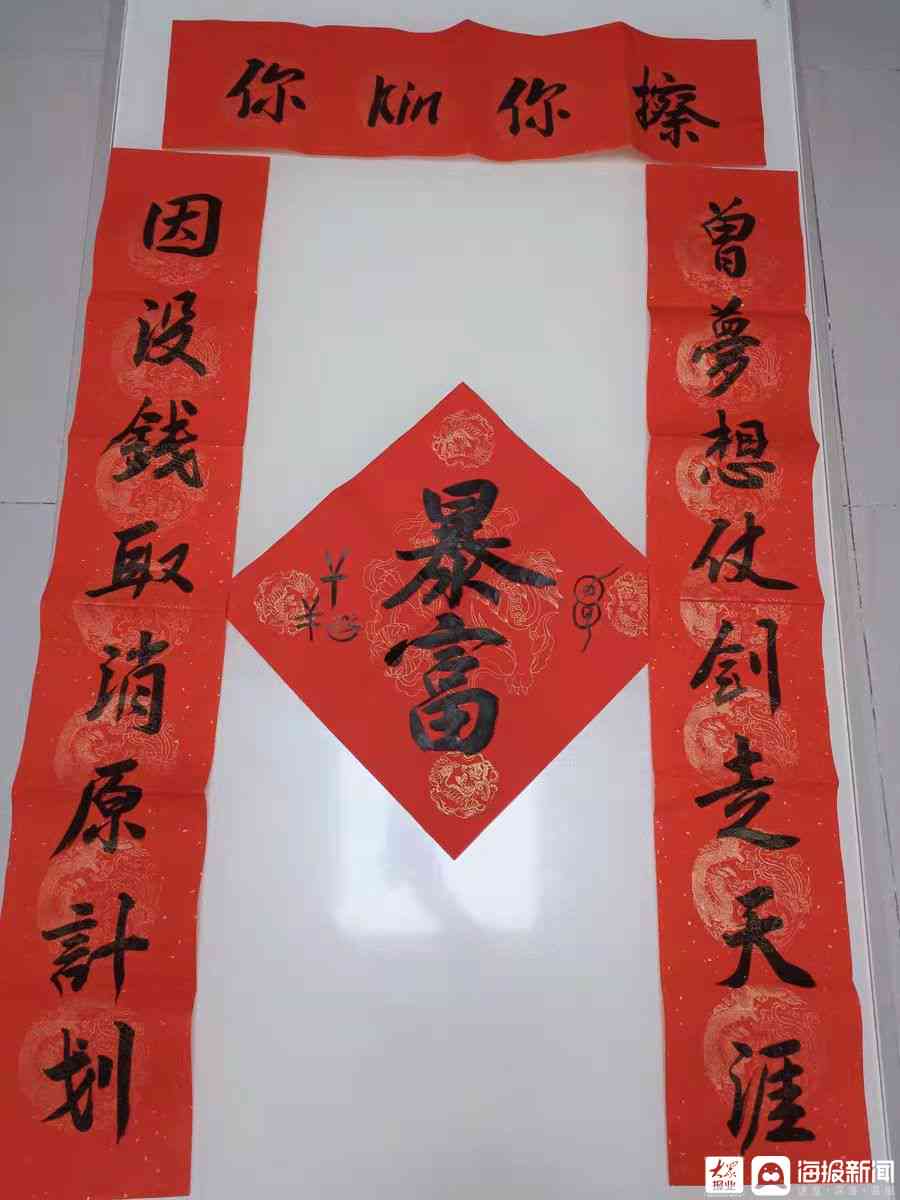 你kin你擦
曾夢想仗剑走天涯
因没錢取消原計划
暴富
大众报业
海报新闻